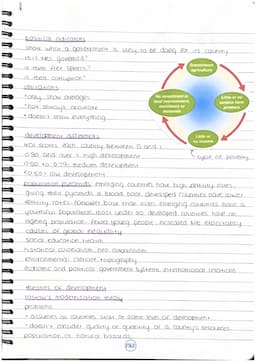 political indicators
show what a government is likely to be doing for its country
is it well governed?
is there free speech?
is there corruption?
limitations
*only show averages
*not always accurate
*doesn't show everything
Subsistence agriculture
Little or no surplus farm products
Little or no income
cycle of poverty
development differences
HDI scores each country between 0 and 1
0.80 and over = high development
0.50 to 0.79 = medium development
< 0.50 = low development
population pyramids: emerging countries have high fertility rates,
giving their pyramids a broad base. developed countries have lower
fertility rates: narrower base than sides. emerging countries have a
youthful population, most under 30. developed countries have an
ageing population: fewer young people, increased life expectancy
causes of global inequality
social: education, health
historical: colonialism, neo colonialism
environmental: climate, topography
economic and political: government systems, international relations
theories of development
rostow's modernisation theory
problems
* assumes all countries start at same level of development
* doesn't consider quality or quantity of a country's resources,
population or natural hazards